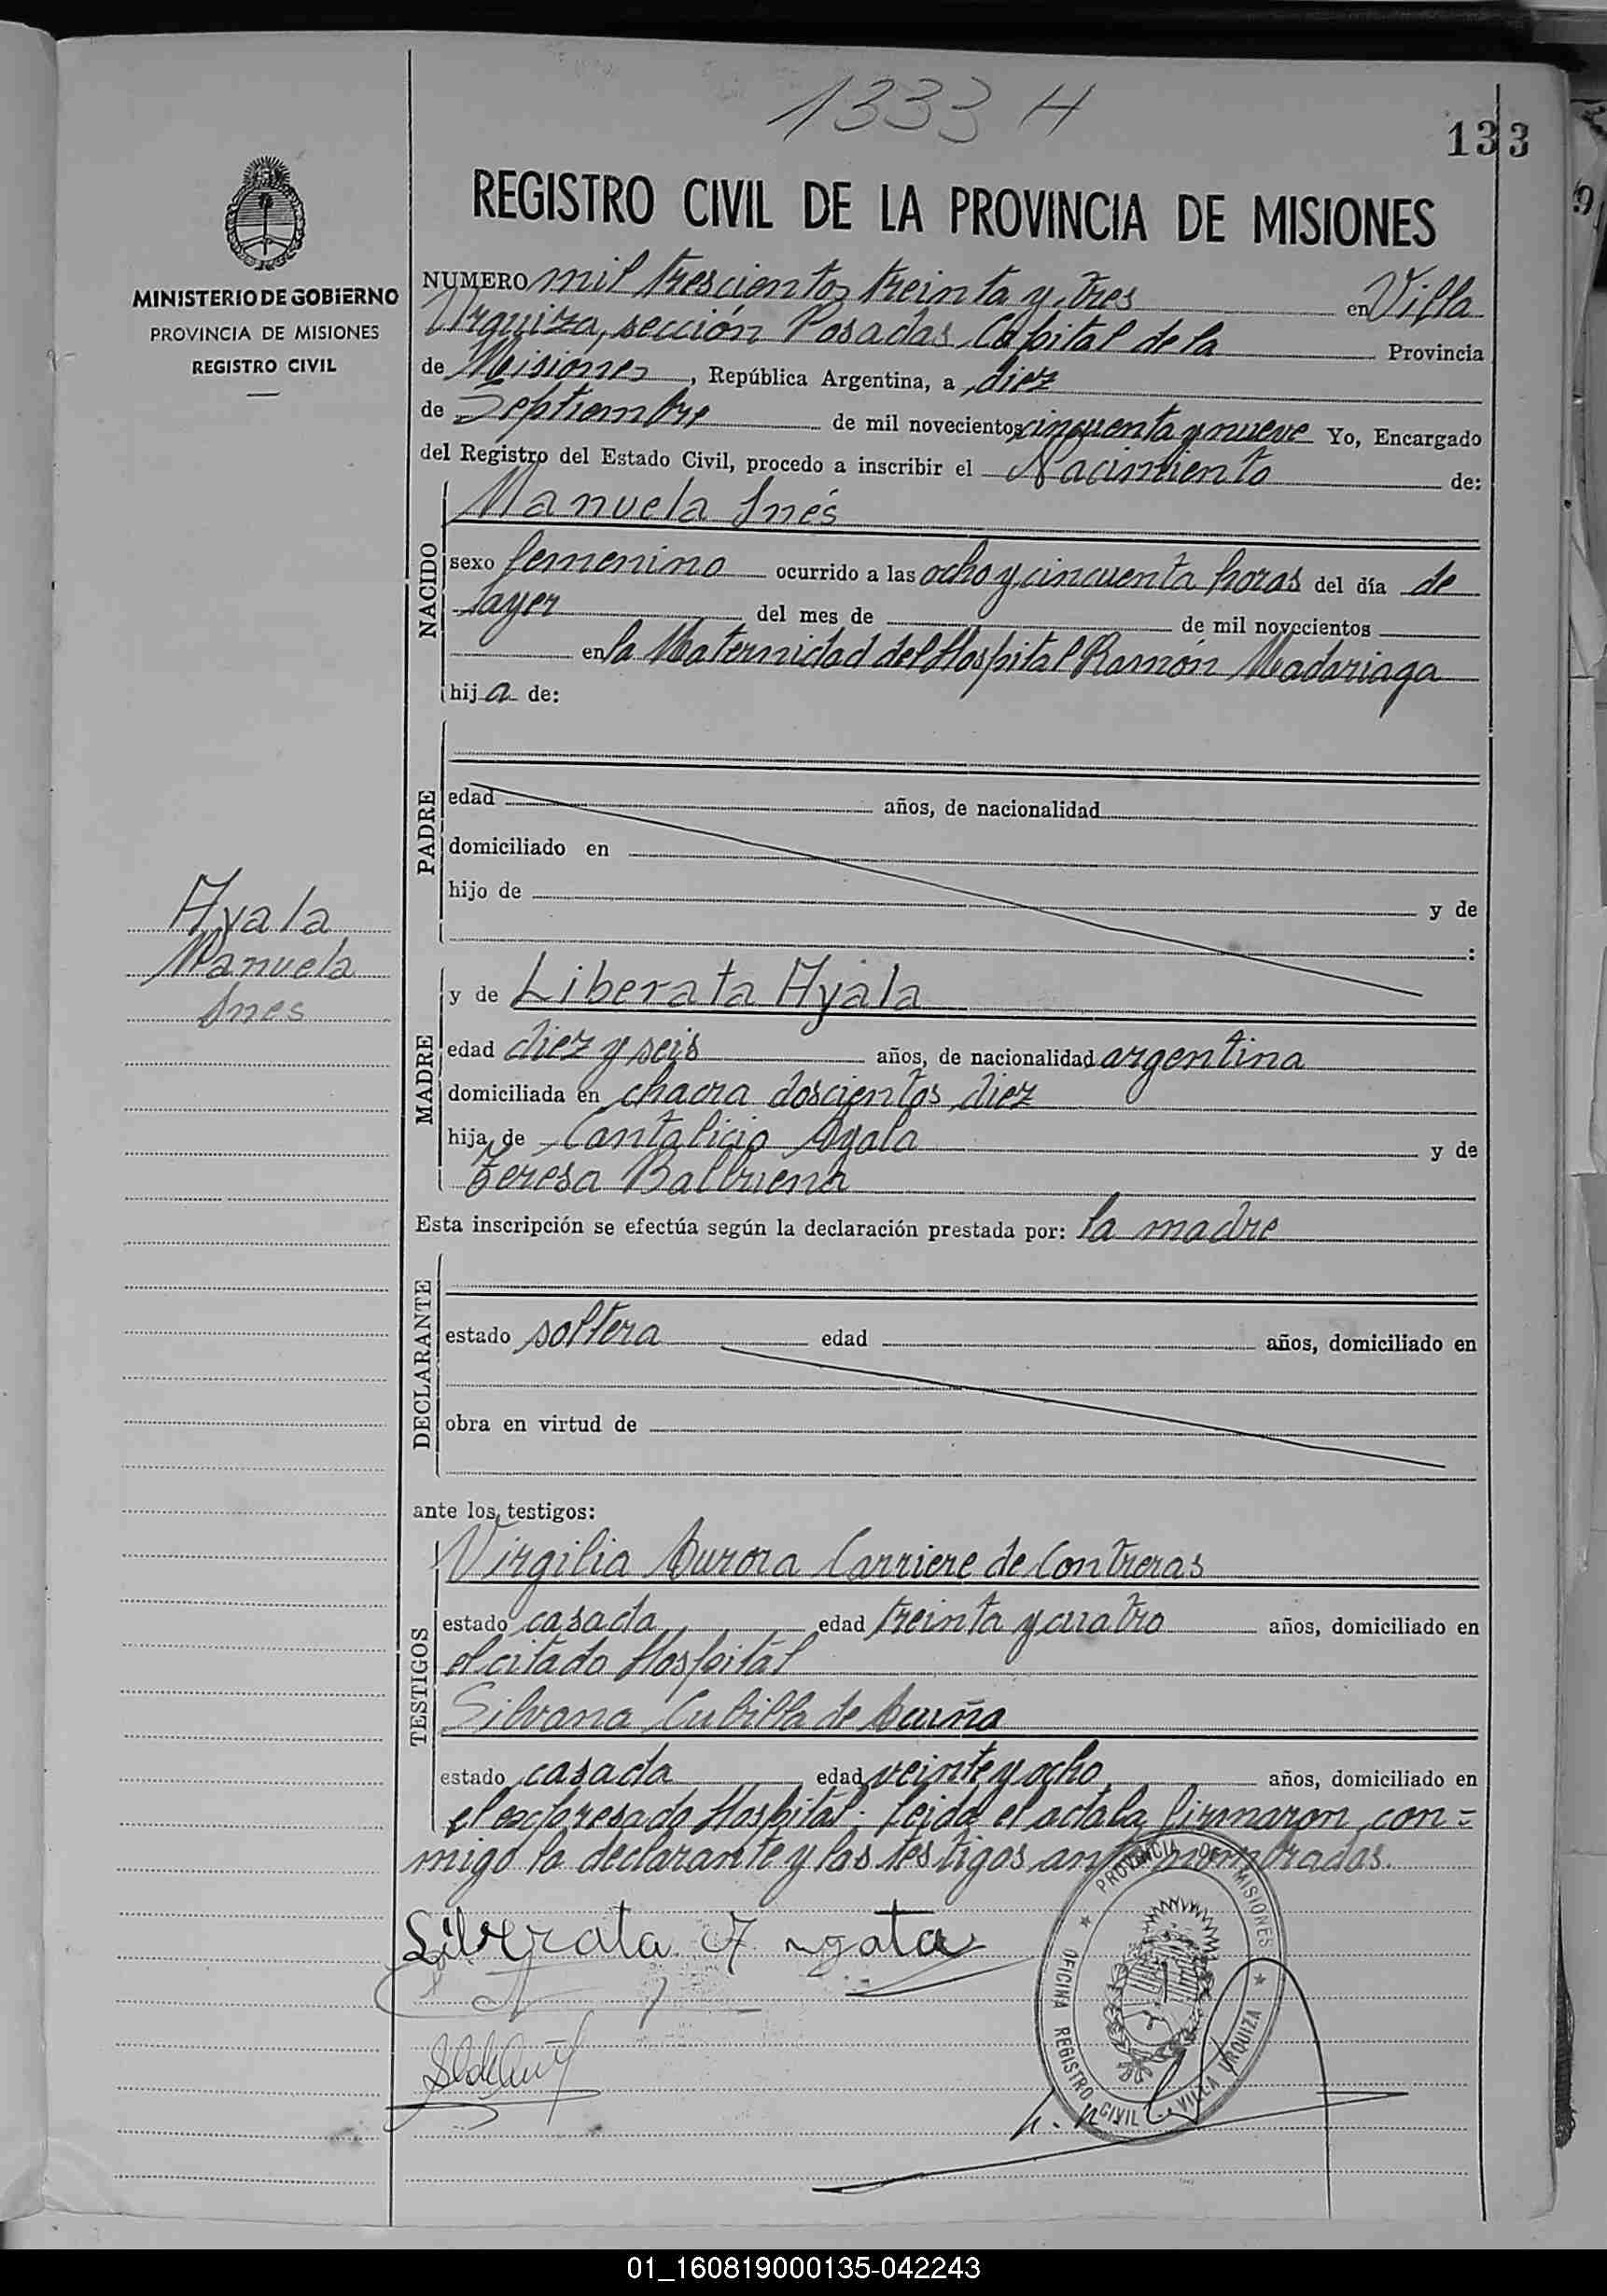 1333 H
133
MINISTERIO DE GOBIERNO
PROVINCIA DE MISIONES
REGISTRO CIVIL
REGISTRO CIVIL DE LA PROVINCIA DE MISIONES
NUMERO mil trescientos treinta y tres en Villa
Urquiza, sección Posadas Capital de la Provincia
de Misiones, República Argentina, a diez
de Septiembre de mil novecientos cincuenta y nueve Yo, Encargado
del Registro del Estado Civil, procedo a inscribir el Nacimiento de:
NACIDO
Manuela Inés
sexo femenino ocurrido a las ocho y cincuenta horas del día de
ayer del mes de de mil novecientos
en la Maternidad del Hospital Ramón Madariaga
hija de:
PADRE
edad años, de nacionalidad
domiciliado en
hijo de y de
:
Ayala
Manuela
Ines
MADRE
y de Liberata Ayala
edad diez y seis años, de nacionalidad argentina
domiciliada en chacra doscientos diez
hija de Cantalicio Ayala y de
Teresa Balbuena
Esta inscripción se efectúa según la declaración prestada por: la madre
DECLARANTE
estado soltera edad años, domiciliado en
obra en virtud de
ante los testigos:
TESTIGOS
Virgilia Aurora Carriere de Contreras
estado casada edad treinta y cuatro años, domiciliado en
el citado Hospital
Silvana Cubilla de Acuña
estado casada edad veinte y ocho años, domiciliado en
el expresado Hospital. Leida el acta la firmaron con=
migo la declarante y los testigos antenombrados.
Liberata
PROVINCIA DE MISIONES
OFICINA REGISTRO CIVIL VILLA URQUIZA
01_160819000135-042243